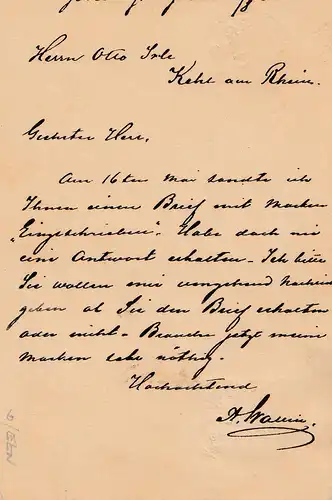 Herrn Otto Irle
Kehl am Rhein.
Geehrter Herr,
Am 16ten Mai sandte ich
Ihnen einen Brief mit Marken
„Eingeschrieben". Habe doch nie
eine Antwort erhalten. Ich bitte
Sie wollen mir umgehend Nachricht
geben ob Sie den Brief erhalten
oder nicht. Brauche jetzt meine
Marken sehr nöthig.
Hochachtend
A. Wallin.